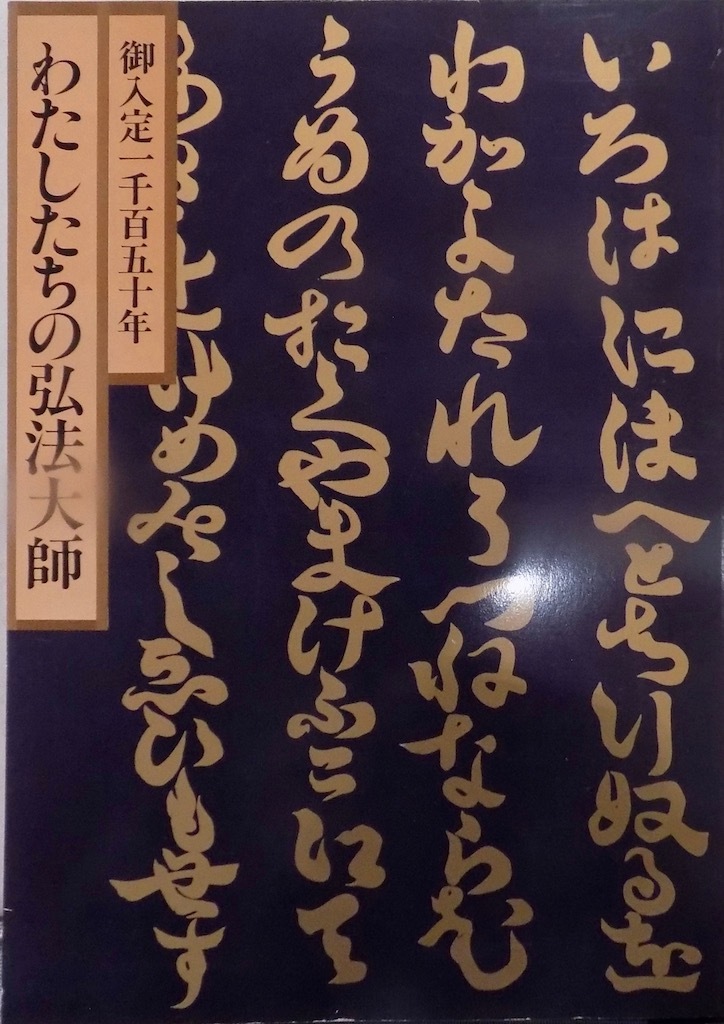 いろはにほへとちりぬるを
わかよたれそつねならむ
うゐのおくやまけふこえて
あさきゆめみしゑひもせす
御入定一千百五十年
わたしたちの弘法大師